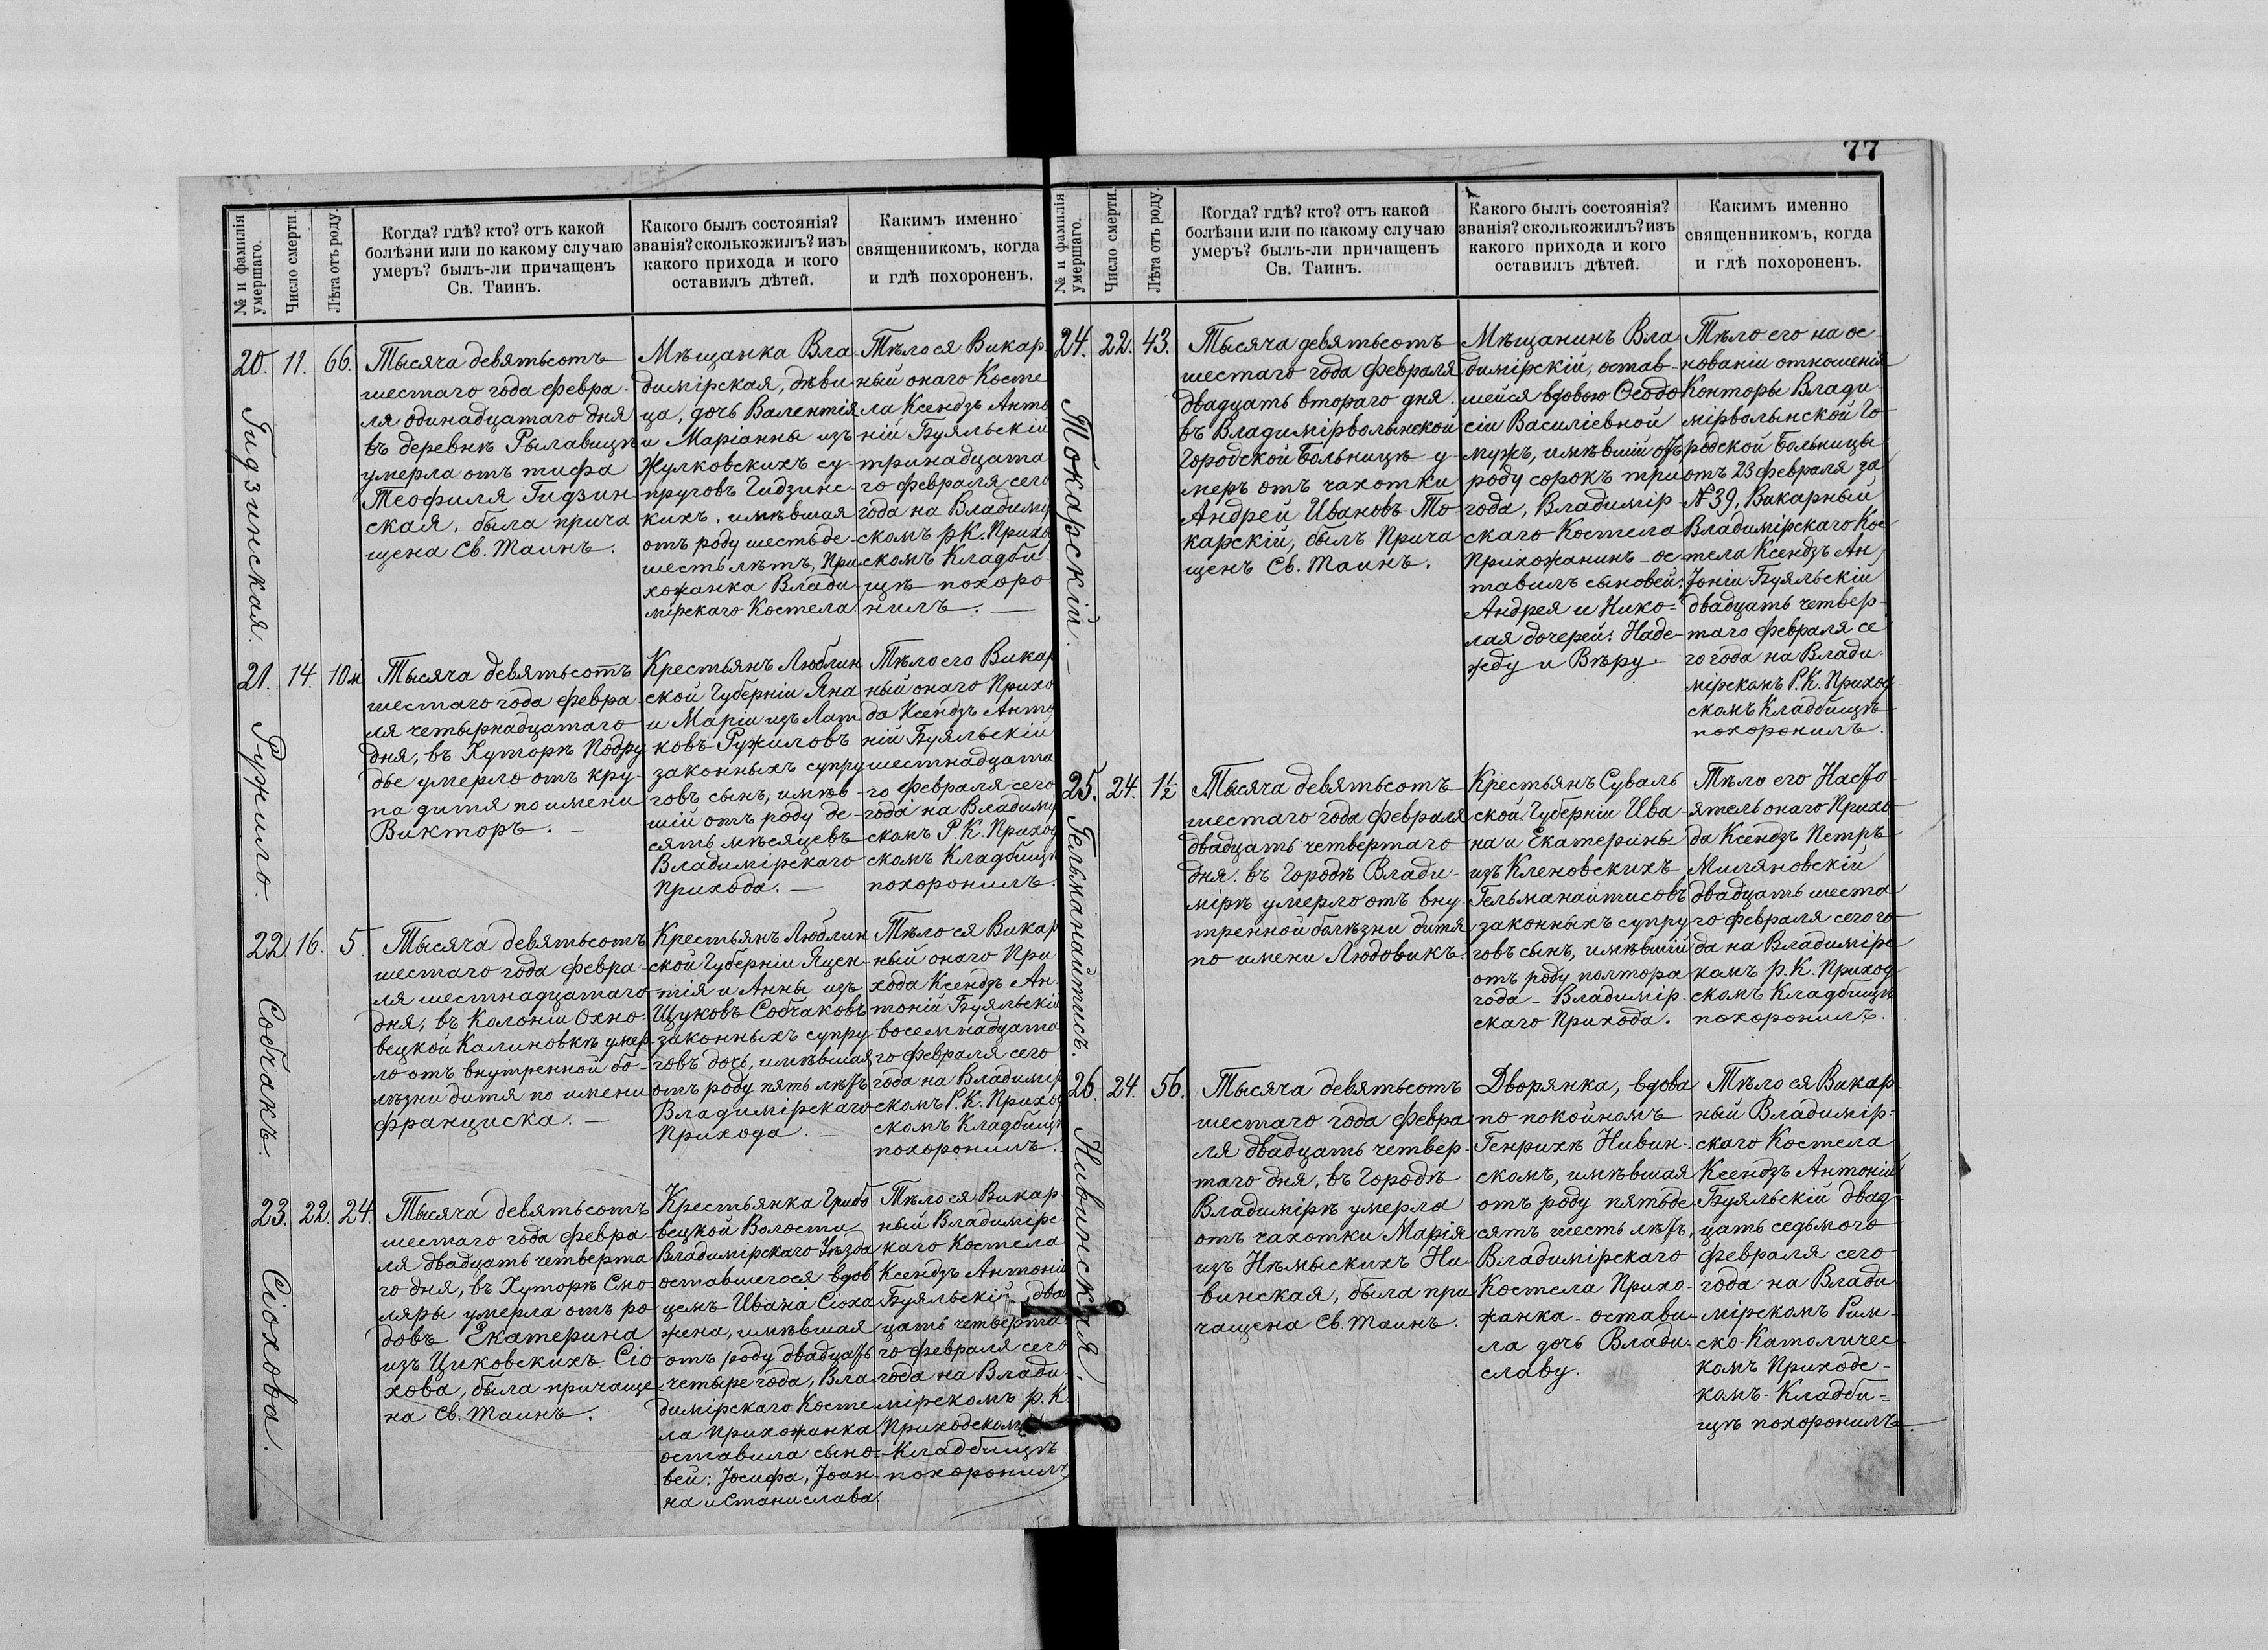 77
№ и фамилія
умершаго.
Число смерти.
Лѣта отъ роду.
Когда? гдѣ? кто? отъ какой
болѣзни или по какому случаю
умеръ? былъ-ли причащенъ
Св. Таинъ.
Какого былъ состоянія?
званія? сколько жилъ? изъ
какого прихода и кого
оставилъ дѣтей.
Какимъ именно
священникомъ, когда
и гдѣ похороненъ.
20.
Гидзинская.
11.
66.
Тысяча девятьсотъ
шестаго года февра-
ля одинадцатаго дня
въ деревнѣ Рылавицѣ
умерла отъ тифа
Теофиля Гидзин-
ская, была прича
щена Св. Таинъ.
Мѣщанка Вла
димірская, дѣви
ца, дочь Валентія
и Маріанны изъ
Жулковскихъ су-
пруговъ Гидзинс-
кихъ, имѣвшая
отъ роду шестьде-
шесть лѣтъ, При
хожанка Влади-
мірскаго Костела
Тѣло ея Викар
ный онаго Косте
ла Ксендзъ Анто
ній Буяльскій
тринадцата
го февраля сего
года на Владимі
скомъ Р.К. Прихо
скомъ Кладби-
щѣ похоро
нилъ. —
21.
Ружило.
14.
10 м
Тысяча девятьсотъ
шестаго года февра-
ля четырнадцатаго
дня, въ Хуторѣ Подру
дье умерло отъ кру-
па дитя по имени
Викторъ. —
Крестьянъ Люблин
ской Губерніи Яна
и Маріи изъ Лат
ковъ Ружиловъ
законныхъ супру
говъ сынъ, имѣв-
шій отъ роду де-
сять мѣсяцевъ
Владимірскаго
Прихода. —
Тѣло его Викар
ный онаго Прихо
да Ксендзъ Анто
ній Буяльскій
шестнадцата
го февраля сего
года на Владимі
скомъ Р.К. Приход
скомъ Кладбищѣ
похоронилъ.
22.
Собчакъ.
16.
5
Тысяча девятьсотъ
шестаго года февра-
ля шестнадцатаго
дня, въ Колоніи Охно-
вецкой Калиновкѣ умер
ло отъ внутренной бо-
лѣзни дитя по имени
Франциска. —
Крестьянъ Люблин
ской Губерніи Яцен-
тія и Анны изъ
Щуковъ Собчаковъ
законныхъ супру
говъ дочь, имѣвшая
отъ роду пять лѣтъ
Владимірскаго
Прихода. —
Тѣло ея Викар
ный онаго При
хода Ксендзъ Ан-
тоній Буяльскій
восемнадцата
го февраля сего
года на Владимір
скомъ Р.К. Приход
скомъ Кладбищѣ
похоронилъ.
23.
Сіохова.
22.
24.
Тысяча девятьсотъ
шестаго года февра-
ля двадцать четверта
го дня, въ Хуторѣ Смо-
ляры умерла отъ ро-
довъ Екатерина
изъ Циковскихъ Сіо-
хова, была причаще
на Св. Таинъ.
Крестьянка Грибо
вецкой Волости
Владимірскаго Уѣзда
оставшегося вдов
цемъ Ивана Сіоха
жена, имѣвшая
отъ роду двадцать
четыре года, Вла
димірскаго Косте
ла Прихожанка
оставила сыно-
вей: Іосифа, Іоан-
на и Станислава.
Тѣло ея Викар-
ный Владимірс-
каго Костела
Ксендзъ Антоній
Буяльскій два
цать четверта
го февраля сего
года на Влади-
мірскомъ Р.К.
Приходском
Кладбищѣ
похоронилъ
№ и фамилія
умершаго.
Число смерти.
Лѣта отъ роду.
Когда? гдѣ? кто? отъ какой
болѣзни или по какому случаю
умеръ? былъ-ли причащенъ
Св. Таинъ.
Какого былъ состоянія?
званія? сколько жилъ? изъ
какого прихода и кого
оставилъ дѣтей.
Какимъ именно
священникомъ, когда
и гдѣ похороненъ.
24.
Токарскій. —
22.
43.
Тысяча девятьсотъ
шестаго года февраля
двадцать втораго дня.
въ Владимірволынской
Городской Больницѣ у-
меръ отъ чахотки
Андрей Ивановъ То-
карскій, былъ Прича
щенъ Св. Таинъ.
Мѣщанинъ Вла
димірскій, остав-
шейся вдовою Ѳеодо
сіи Василіевной
мужъ, имѣвшій отъ
роду сорокъ три
года, Владимір-
скаго Костела
Прихожанинъ - ос
тавилъ сыновей:
Андрея и Нико-
лая дочерей: Наде-
жду и Вѣру.
Тѣло его на ос-
нованіи отношенія
Конторы Влади-
мірволынской Го
родской Больницы
отъ 23 февраля за
№ 39, Викарный
Владимірскаго Кос
тела Ксендзъ Ан
тоній Буяльскій
двадцать четвер-
таго февраля се
го года на Влади-
мірскомъ Р.К. Приход
скомъ Кладбищѣ
похоронилъ.
25.
Гельманайтисъ.
24.
1½
Тысяча девятьсотъ
шестаго года февраля
двадцать четвертаго
дня. въ Городѣ Влади-
мірѣ умерло отъ вну-
тренной болѣзни дитя
по имени Людовикъ.
Крестьянъ Суваль
ской Губерніи Ива-
на и Екатерины
изъ Кленовскихъ
Гельманайтисовъ
законныхъ супру
говъ сынъ, имѣвшій
отъ роду полтора
года - Владимір-
скаго Прихода.
Тѣло его Насто-
ятель онаго Прихо
да Ксендзъ Петръ
Миляновскій
двадцать шеста
го февраля сего го
да на Владимірс
комъ Р.К. Приход
скомъ Кладбищѣ
похоронилъ.
26.
Нивинская. —
24.
56.
Тысяча девятьсотъ
шестаго года февра
ля двадцать четвер-
таго дня, въ Городѣ
Владимірѣ умерла
отъ чахотки Марія
изъ Нѣмыскихъ Ни-
винская, была при
чащена Св. Таинъ.
Дворянка, вдова
по покойномъ
Генрихѣ Нивин-
скомъ, имѣвшая
отъ роду пятьде
сятъ шесть лѣтъ,
Владимірскаго
Костела Прихо-
жанка - остави-
ла дочь Влади-
славу.
Тѣло ея Викар
ный Владимір-
скаго Костела
Ксендзъ Антоній
Буяльскій двад-
цать седьмого
февраля сего
года на Влади
мірскомъ Рим-
ско-Католичес-
комъ Приходс-
комъ-Кладби-
щѣ похоронилъ.